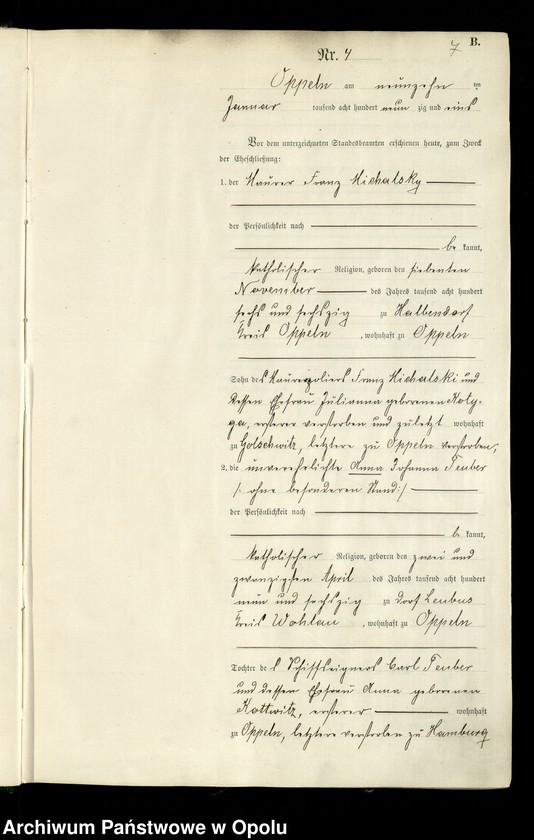 B.
7
Nr. 4
Oppeln am neunzehn ten
Januar tausend acht hundert neun zig und eins
Vor dem unterzeichneten Standesbeamten erschienen heute, zum Zweck
der Eheschließung:
1. der Maurer Franz Michalsky
der Persönlichkeit nach
be kannt,
katholischer Religion, geboren den siebenten
November des Jahres tausend acht hundert
sechs und sechszig zu Halbendorf
Kreis Oppeln, wohnhaft zu Oppeln
Sohn des Maurerpoliers Franz Michalski und
dessen Ehefrau Julianna geborenen Koly-
ga, ersterer verstorben und zuletzt wohnhaft
zu Golschwitz, letztere zu Oppeln verstorben,
2. die unverehelichte Anna Johanna Teuber
/: ohne besonderen Stand :/
der Persönlichkeit nach
be kannt,
katholischer Religion, geboren den zwei und
zwanzigsten April des Jahres tausend acht hundert
neun und sechszig zu Dorf Leubus
Kreis Wohlau, wohnhaft zu Oppeln
Tochter des Schiffseigners Carl Teuber
und dessen Ehefrau Anna geborenen
Kottwitz, ersterer wohnhaft
zu Oppeln, letztere verstorben zu Hamburg
Archiwum Państwowe w Opolu